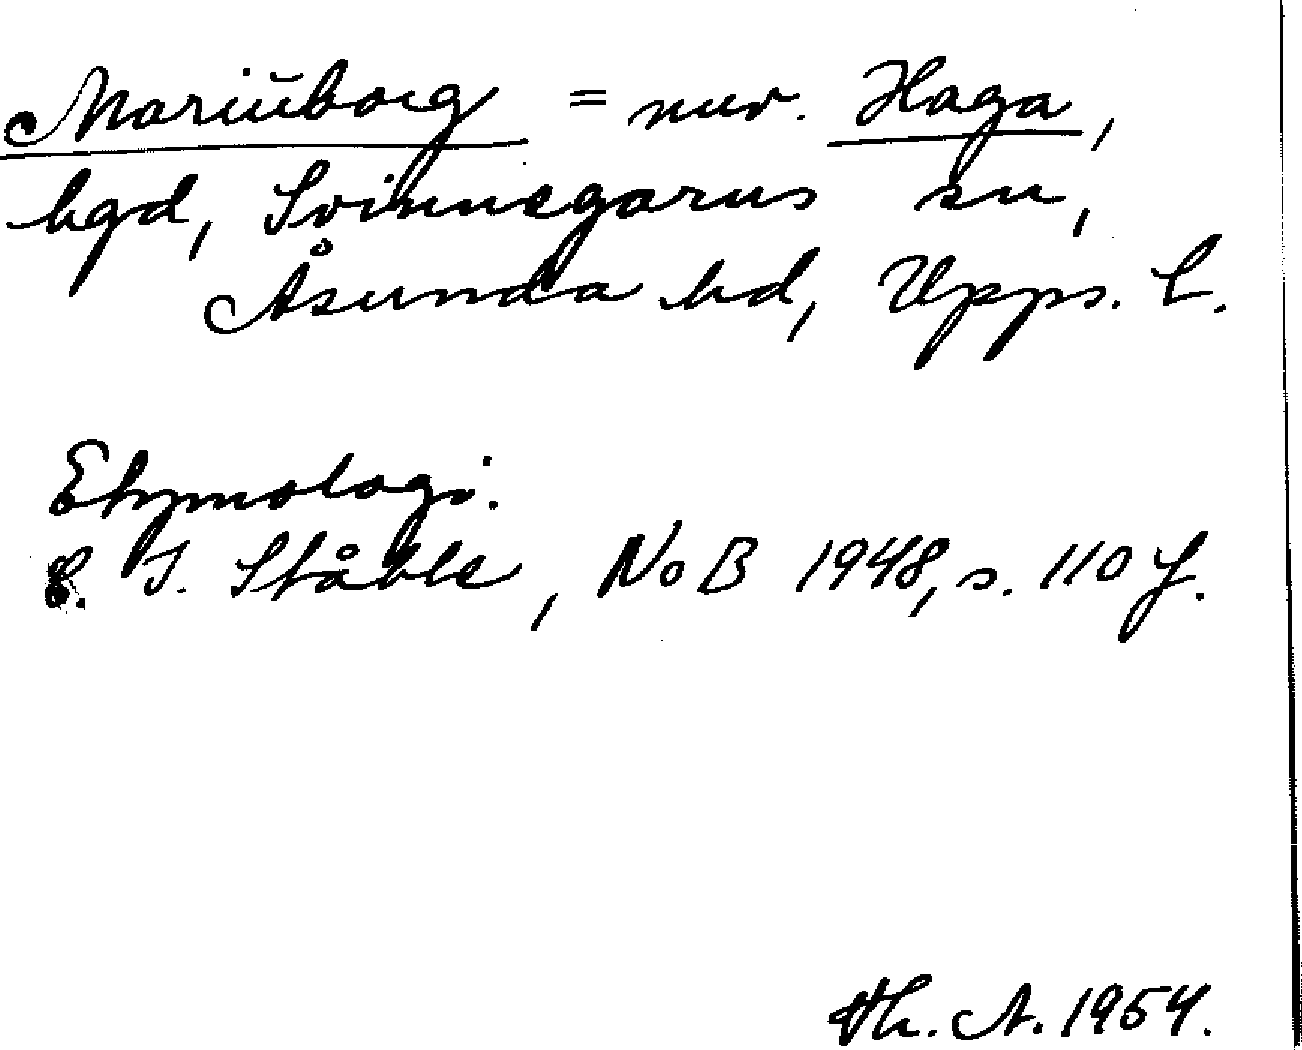 Mariŭborg = nuv. Haga,
hgd, Svinnegarns sn,
Åsunda hd, Upps. L.
Etymologi.
C. I. Ståhle, NoB 1948, s. 110 f.
Th. A. 1954.